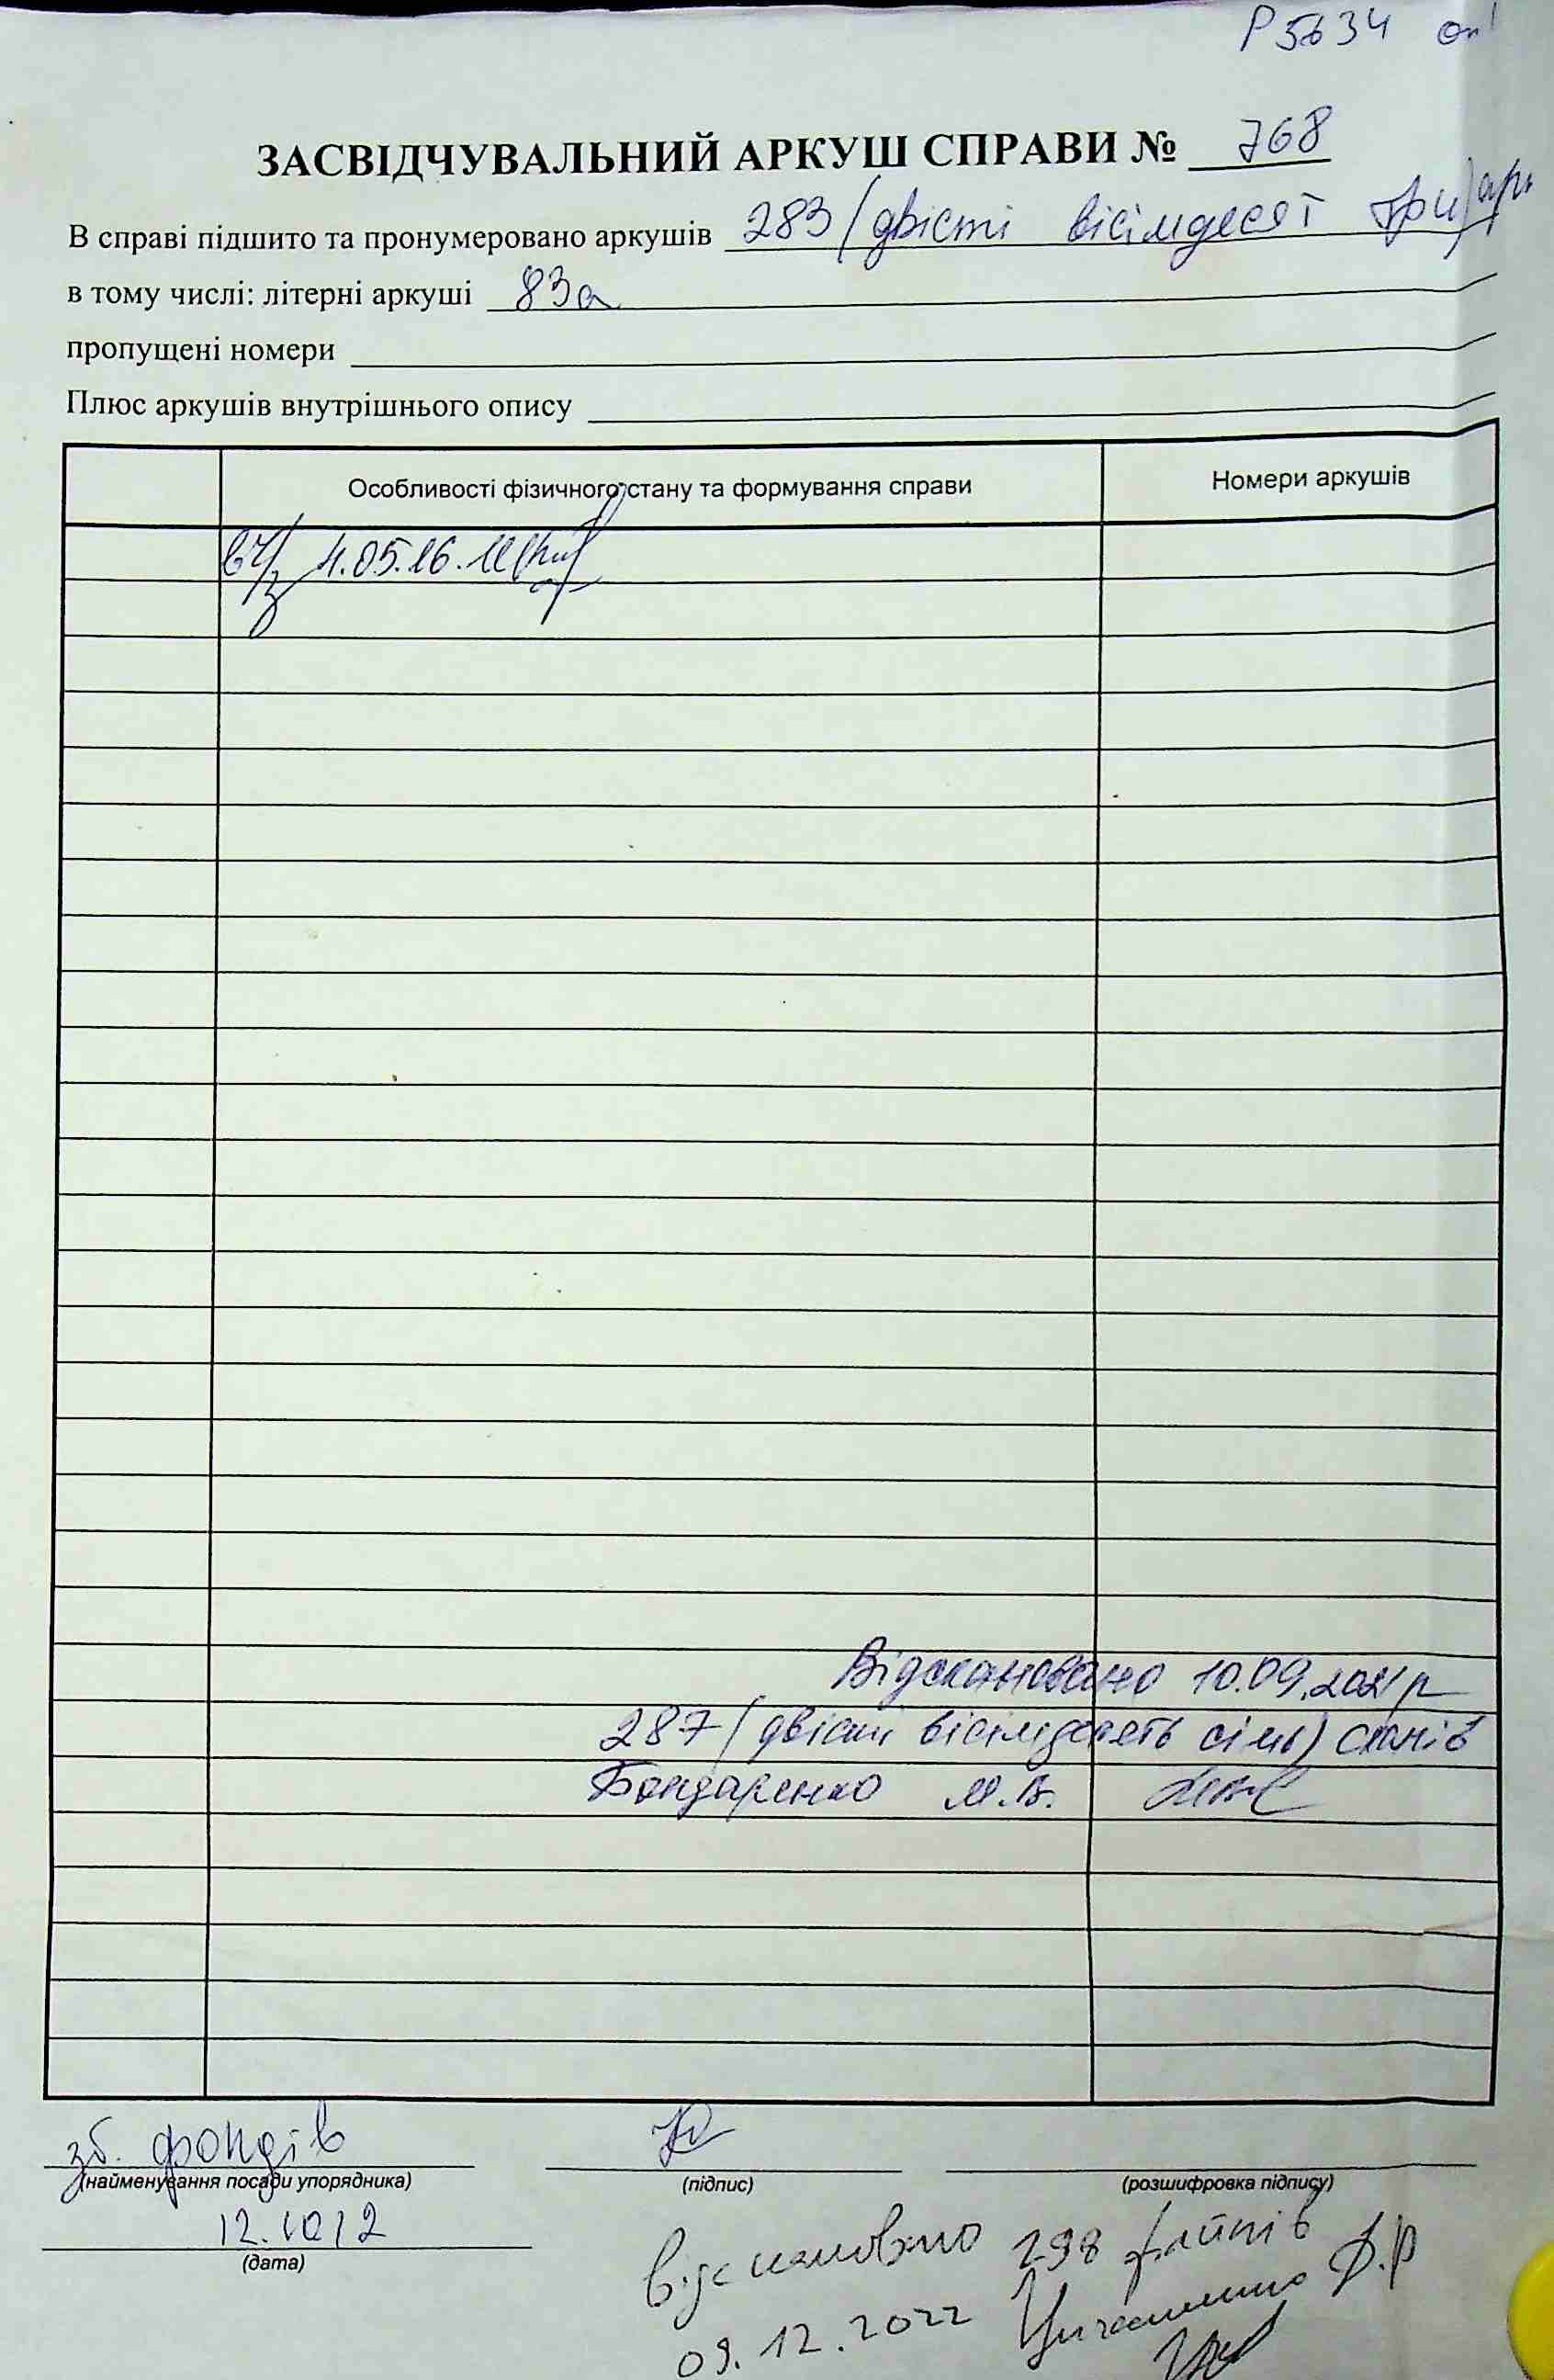 Р5634 оп1
ЗАСВІДЧУВАЛЬНИЙ АРКУШ СПРАВИ № 768
В справі підшито та пронумеровано аркушів 283 (двісті вісімдесят три) арк
в тому числі: літерні аркуші 83а
пропущені номери
Плюс аркушів внутрішнього опису
Особливості фізичного стану та формування справи
Номери аркушів
4.05.16.
Відскановано 10.09.2021р
287 (двісті вісімдесять сім) сканів
Бондаренко М.В.
зб. фондів
(найменування посади упорядника)
(підпис)
(розшифровка підпису)
(дата)
відскановано 298 файлів
09.12.2022